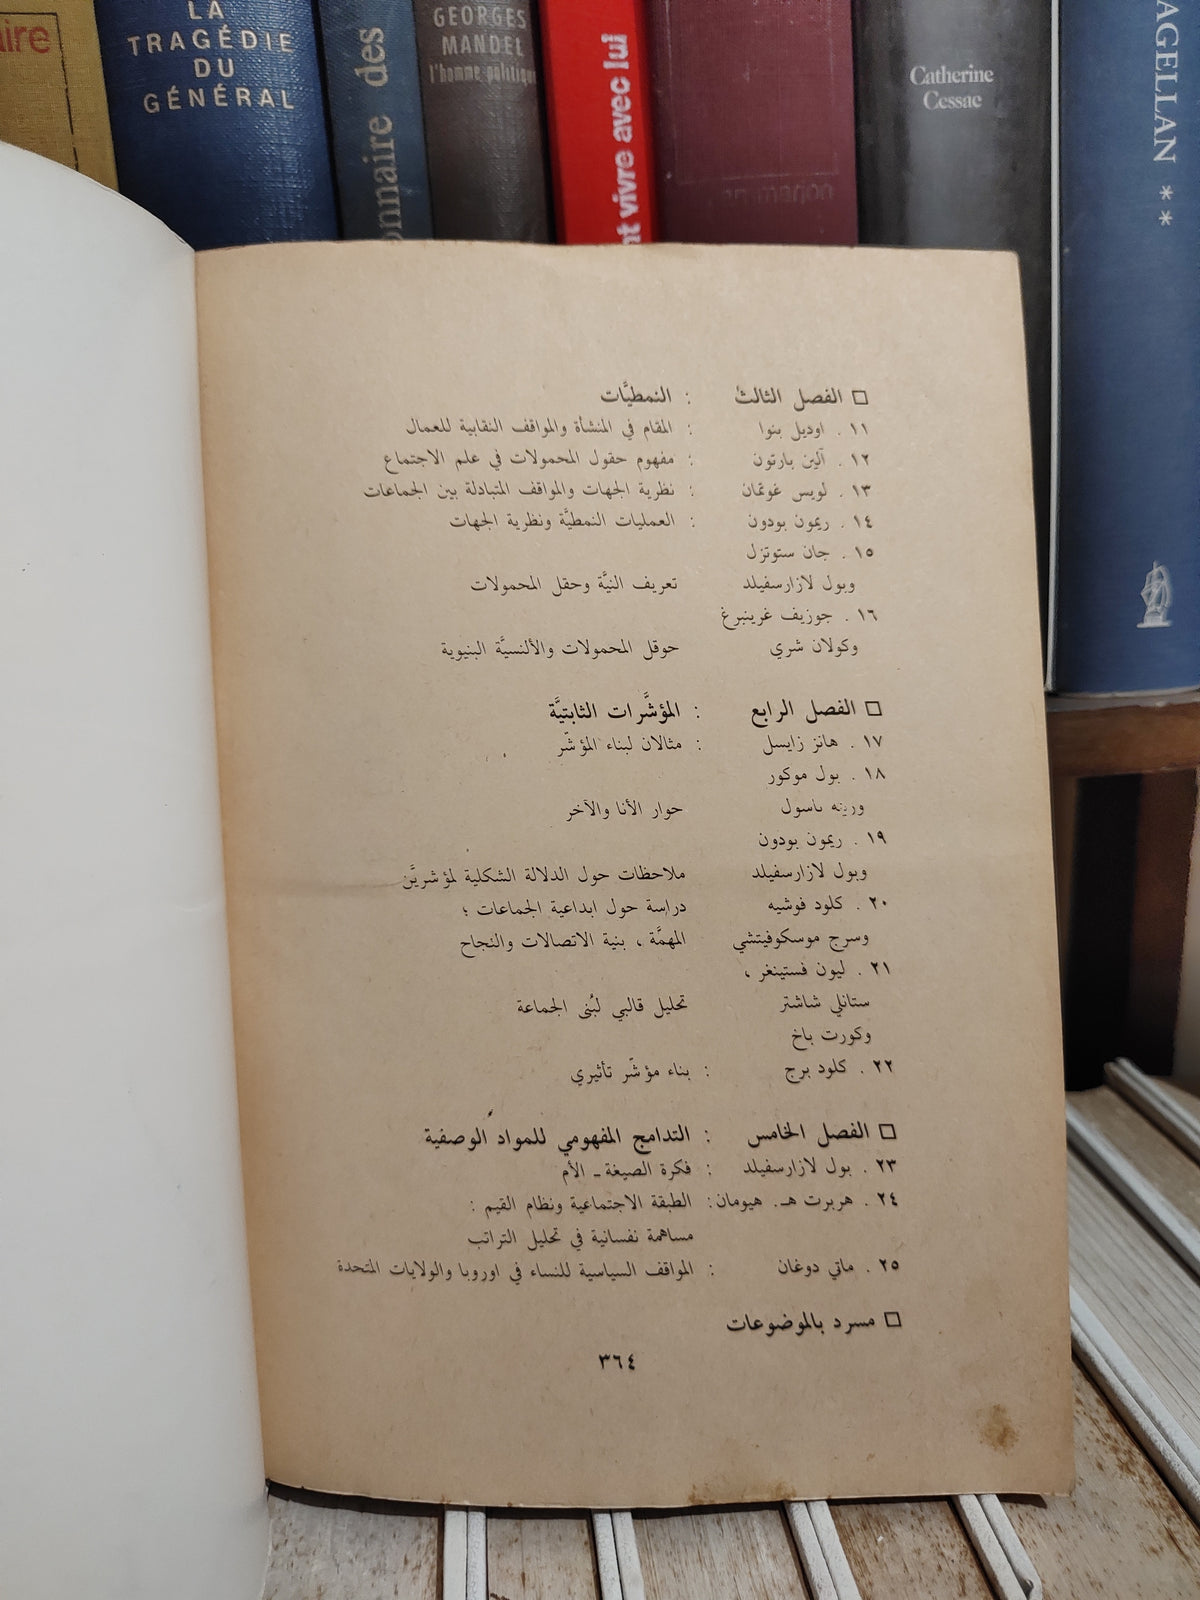 aire
LA
TRAGÉDIE
DU
GÉNÉRAL
onnaire des
GEORGES
MANDEL
l'homme politique
nt vivre avec lui
Catherine
Cessac
AGELLAN **
□ الفصل الثالث : النمطيَّات
١١ . اوديل بنوا : المقام في المنشأة والمواقف النقابية للعمال
١٢ . آلين بارتون : مفهوم حقول المحمولات في علم الاجتماع
١٣ . لويس غوتمان : نظرية الجهات والمواقف المتبادلة بين الجماعات
١٤ . ريمون بودون : العمليات النمطيَّة ونظرية الجهات
١٥ . جان ستوتزل
وبول لازارسفيلد تعريف النيَّة وحقل المحمولات
١٦ . جوزيف غرينبرغ
وكولان شري حوقل المحمولات والألنسيَّة البنيوية
□ الفصل الرابع : المؤشَّرات الثابتيَّة
١٧ . هانز زايسل : مثالان لبناء المؤشّر
١٨ . بول موكور
ورينه باسول حوار الأنا والآخر
١٩ . ريمون بودون
وبول لازارسفيلد ملاحظات حول الدلالة الشكلية لمؤشريَّن
٢٠ . كلود فوشيه دراسة حول ابداعية الجماعات ؛
وسرج موسكوفيتشي المهمَّة ، بنية الاتصالات والنجاح
٢١ . ليون فستينغر ،
ستانلي شاشتر تحليل قالبي لبُنى الجماعة
وكورت باخ
٢٢ . كلود برج : بناء مؤشّر تأثيري
□ الفصل الخامس : التدامج المفهومي للمواد الوصفية
٢٣ . بول لازارسفيلد : فكرة الصيغة ـ الأم
٢٤ . هربرت هـ. هيومان : الطبقة الاجتماعية ونظام القيم :
مساهمة نفسانية في تحليل التراتب
٢٥ . ماتي دوغان : المواقف السياسية للنساء في اوروبا والولايات المتحدة
□ مسرد بالموضوعات
٣٦٤